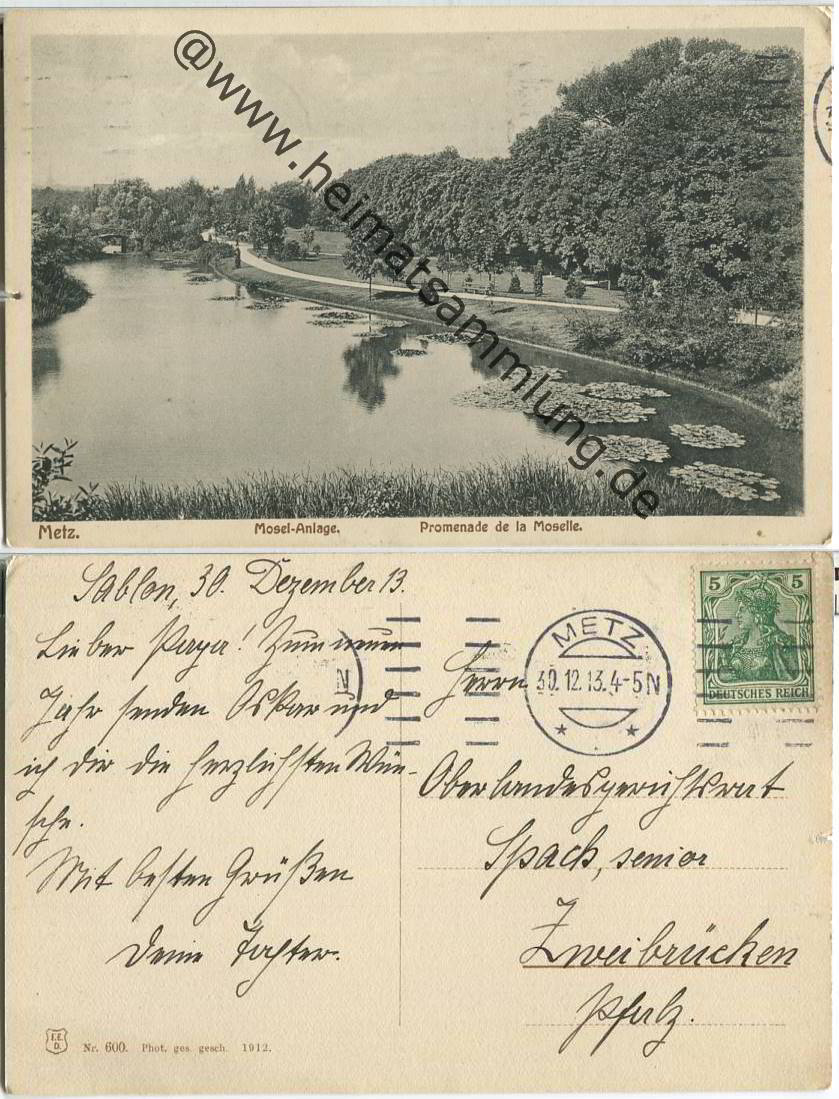 @www.heimatsammlung.de
Metz.
Mosel-Anlage.
Promenade de la Moselle.
Sablon, 30. Dezember 13.
Lieber Papa! Zum neuen
Jahr senden Oskar und
ich dir die herzlichsten Wün-
sche.
Mit besten Grüßen
Deine Tochter.
METZ
30.12.13.4-5N
N
5 5
DEUTSCHES REICH
Herrn
Oberlandesgerichtsrat
Spach, senior
Zweibrücken
Pfalz.
Nr. 600. Phot. ges. gesch. 1912.